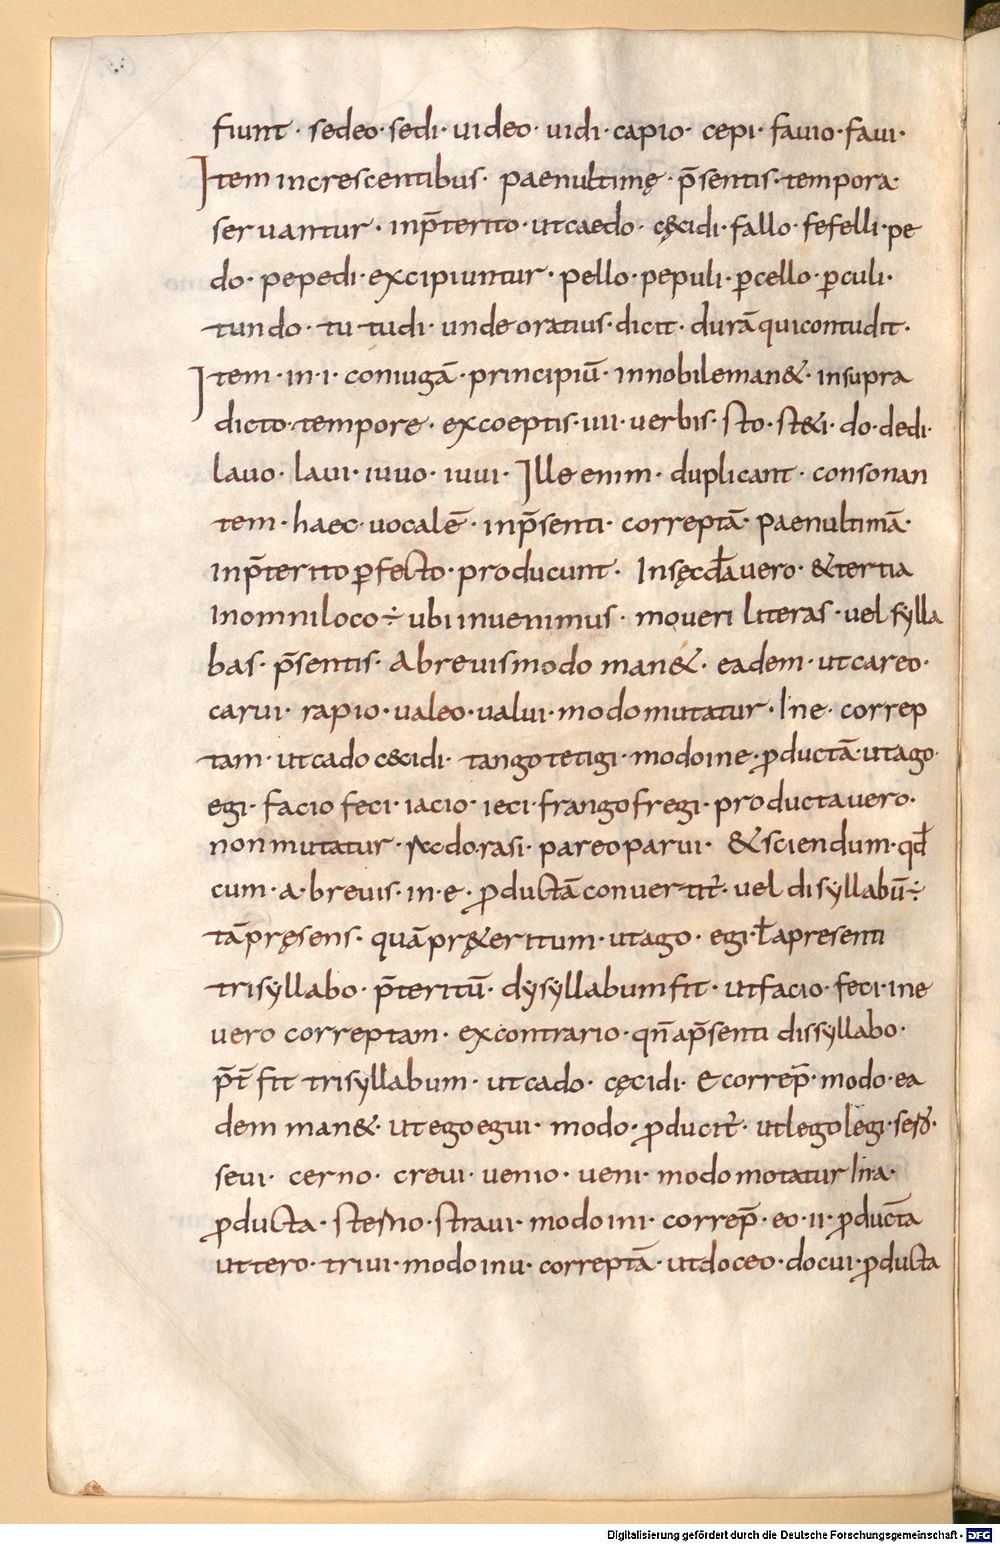 fiunt · sedeo · sedi · uideo · uidi · capio · cepi · fauio · faui ·
Item increscentibus · paenultimę · p̄sentis · tempora ·
seruantur · inp̄terito · utcaedo · cęcidi · fallo · fefelli · pe
do · pepedi · excipiuntur · pello · pepuli · ꝑcello · ꝑculi ·
tundo · tutudi · unde oratius · dicit · durā qui contudit ·
Item · in · i · coniugā · principiū · innobileman& · insupra
dicto · tempore · excoeptis · iiii · uerbis · sto · st&i · do · dedi ·
lauo · laui · iuuo · iuui · Ille enim · duplicant · consonan
tem · haec · uocalē · inp̄senti · correptā · paenultimā ·
inp̄terito ꝑfecto · producunt · Insęcđa uero · & tertia
Inomniloco ÷ ubi inuenimus · moueri literas · uel sylla
bas · p̄sentis · Abreuis modo man& · eadem · utcareo ·
carui · rapio · ualeo · ualui · modo mutatur · Ine · correp
tam · utcado c&cidi · tango tetigi · modo ine · ꝓductā · utago ·
egi · facio feci · iacio · ieci · frango fregi · producta uero ·
non mutatur · rado · rasi · pareo parui · & sciendum · qđ
cum · a · breuis · in · e · ꝓductā conuertit᷑ · uel disyllabū ÷
tā pręsens · quā pr&eritum · utago · egi · ł apresenti
trisyllabo · p̄teritū · dysyllabum fit · utfacio · feci · ine
uero correptam · excontrario · qn̄ ap̄senti dissyllabo ·
p̄t̄ fit trisyllabum · utcado · cęcidi · E correp̄ · modo · ea
dem man& · ut ego egui · modo · ꝓducit᷑ · utlego legi · sero ·
seui · cerno · creui · uenio · ueni · modo motatur In a ·
ꝓducta · sterno · straui · modo in i · correp̄ · eo · ii · ꝓducta
uttero · triui · modo inu · correptā · utdoceo · docui · ꝓducta
Digitalisierung gefördert durch die Deutsche Forschungsgemeinschaft - DFG